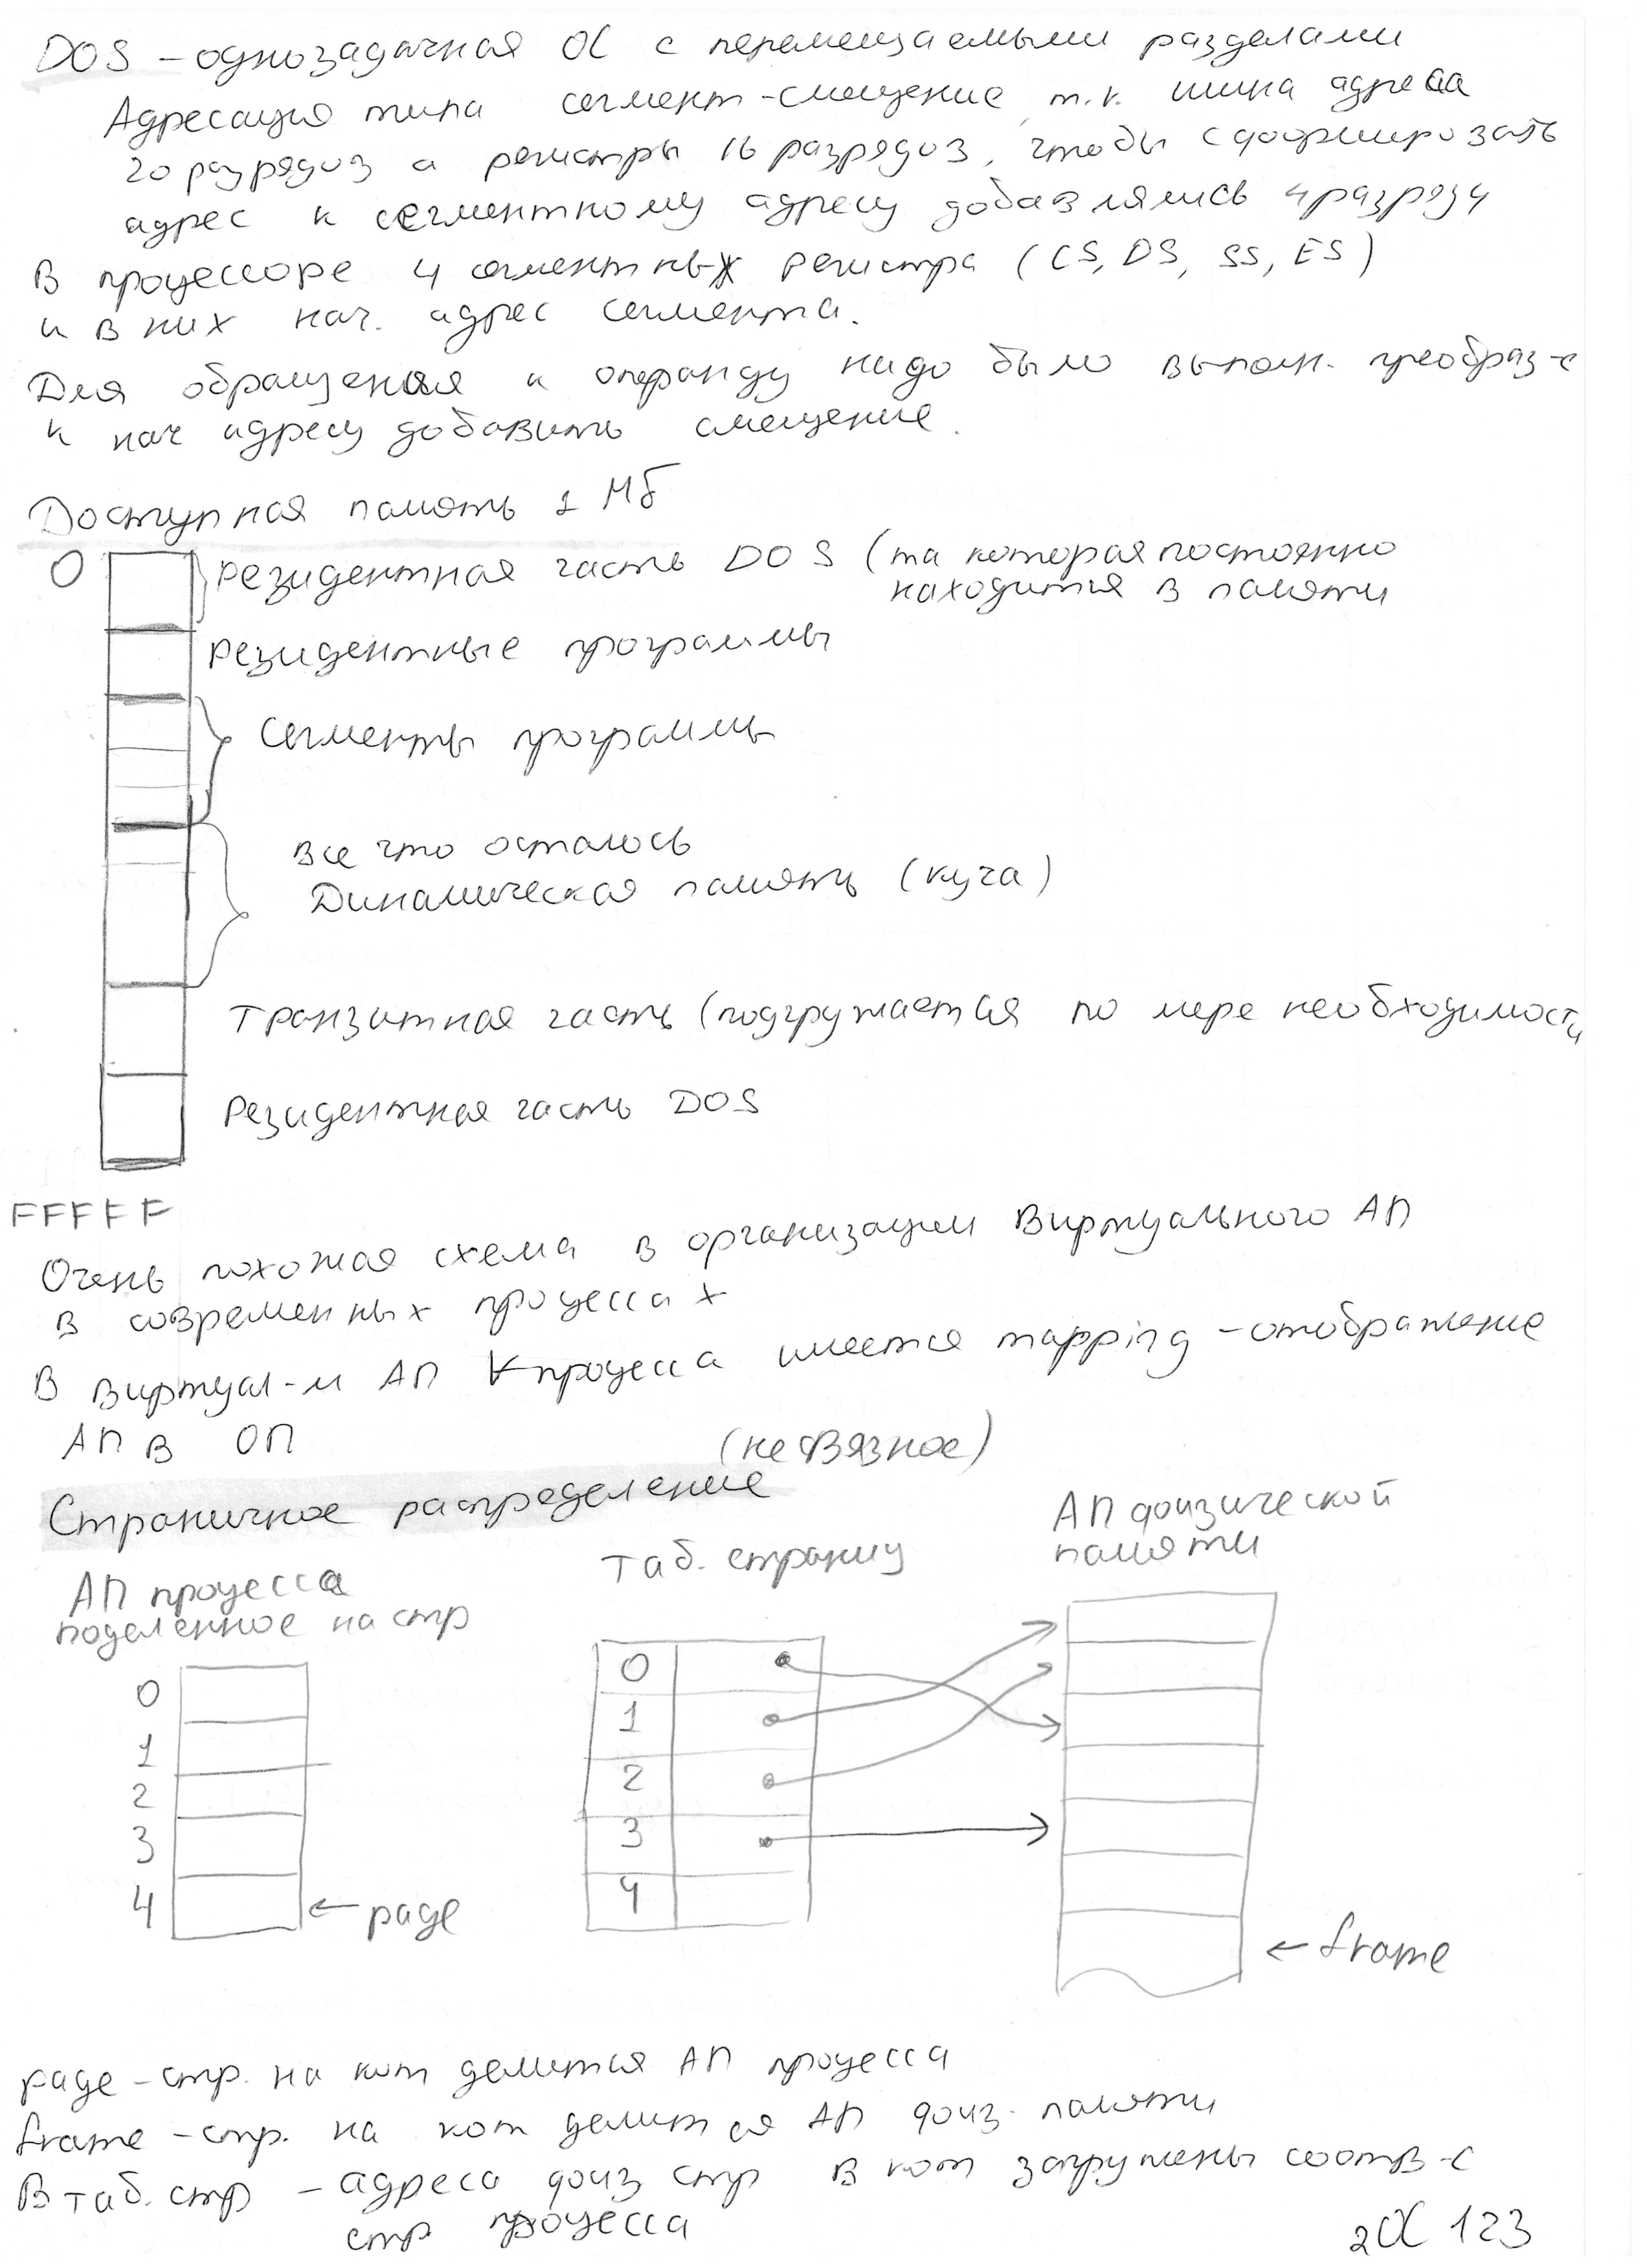 DOS – однозадачная ОС с перемещаемыми разделами
Адресация типа сегмент-смещение, т.к. шина адреса
20 разрядов а регистры 16 разрядов, чтобы сформировать
адрес к сегментному адресу добавлялись 4 разряда
В процессоре 4 сегментных регистра (CS, DS, SS, ES)
и в них нач. адрес сегмента.
Для обращения к операнду надо было выполн. преобраз-е
к нач адресу добавить смещение.
Доступная память 1 Мб
0
резидентная часть DOS (та которая постоянно
находится в памяти
резидентные программы
Сегменты программы
все что осталось
Динамическая память (куча)
транзитная часть (подгружается по мере необходимости
Резидентная часть DOS
FFFFF
Очень похожая схема в организации виртуального АП
в современных процессах
В виртуал-м АП ∀ процесса имеется mapping – отображение
АП в ОП
(несвязное)
Страничное распределение
АП процесса
поделенное на стр
таб. страниц
АП физической
памяти
0
1
2
3
4
← page
0
1
2
3
4
← frame
page – стр. на кот делится АП процесса
frame – стр. на кот делится АП физ. памяти
В таб. стр – адреса физ стр в кот загружены соотв-е
стр процесса
2ОС 123